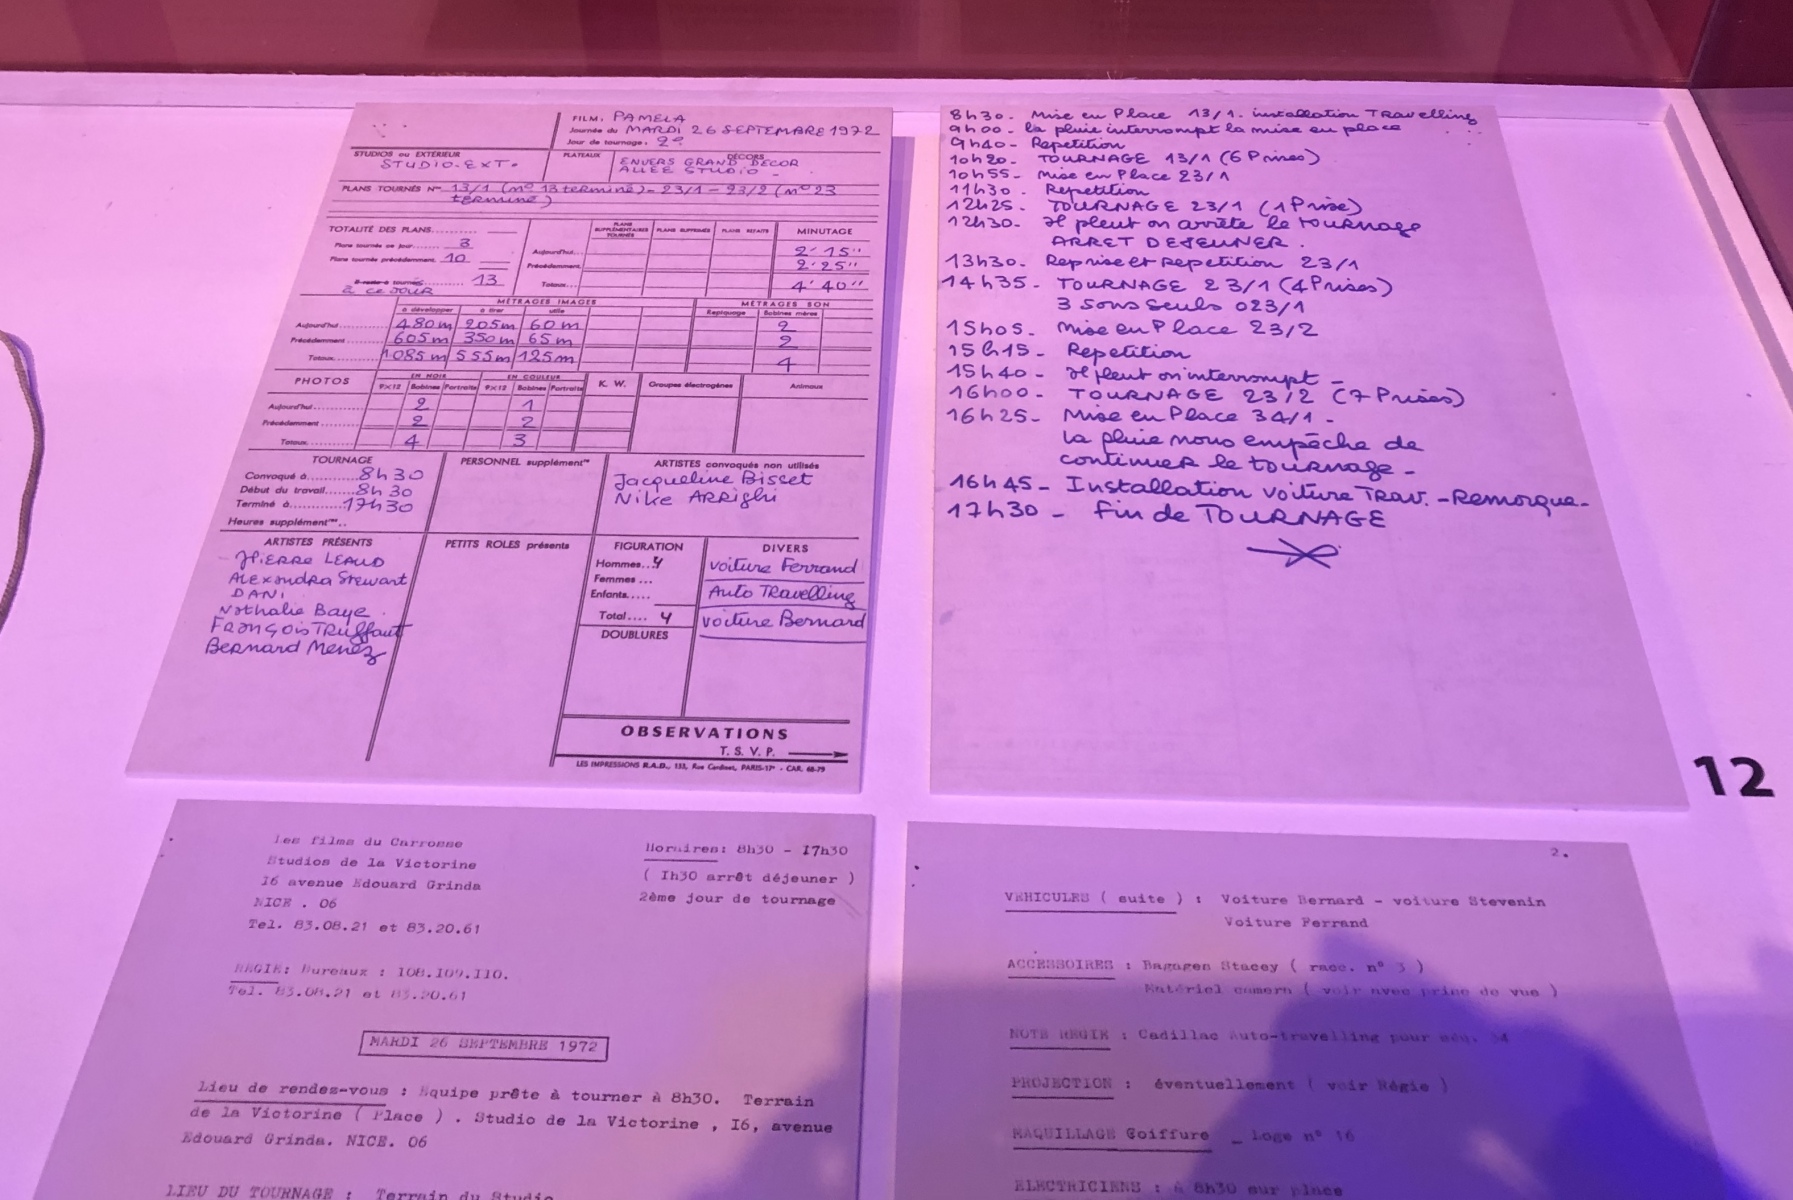 FILM: PAMELA
Journée du MARDI 26 SEPTEMBRE 1972
Jour de tournage: 2e
STUDIOS ou EXTÉRIEUR
STUDIO-EXT.
PLATEAUX
DÉCORS
ENVERS GRAND DECOR
ALLEE STUDIO -
PLANS TOURNÉS Nos 13/1 (n° 13 terminé) - 23/1 - 23/2 (n° 23
terminé)
TOTALITÉ DES PLANS
Plans tournés ce jour 3
Plans tournés précédemment 10
à ce JOUR 13
PLANS SUPPLÉMENTAIRES TOURNÉS PLANS SUPPRIMÉS PLANS REFAITS MINUTAGE
Aujourd'hui 2'15"
Précédemment 2'25"
Totaux 4'40"
MÉTRAGES IMAGES MÉTRAGES SON
à développer à tirer utile Repiquage Bobines mères
Aujourd'hui 480m 205m 60m 2
Précédemment 605m 350m 65m 2
Totaux 1085m 555m 125m 4
PHOTOS EN NOIR EN COULEUR K. W. Groupes électrogènes Animaux
9×12 Bobines Portraits 9×12 Bobines Portraits
Aujourd'hui 2 1
Précédemment 2 2
Totaux 4 3
TOURNAGE
Convoqué à 8h30
Début du travail 8h30
Terminé à 17h30
Heures supplémentres
PERSONNEL supplémentre
ARTISTES convoqués non utilisés
Jacqueline Bisset
Nike ARRighi
ARTISTES PRÉSENTS
JPIERRE LEAUD
ALEXANDRA Stewart
DANI
Nathalie Baye.
FRANÇOIS TRUffaut
BERNARD Menez
PETITS ROLES présents
FIGURATION
Hommes 4
Femmes
Enfants
Total 4
DOUBLURES
DIVERS
voiture Ferrand
Auto TRavelling
voiture Bernard
OBSERVATIONS
T. S. V. P.
LES IMPRESSIONS R.A.D., 133, Rue Cardinet, PARIS-17e - CAR. 68-79
8h30. Mise en Place 13/1. installation TRavelling
9h00 - la pluie interrompt la mise en place
9h40 - Repetition
10h20 - TOURNAGE 13/1 (6 Prises)
10h55 - Mise en Place 23/1
11h30. Repetition
12h25. TOURNAGE 23/1 (1 Prise)
12h30. Il pleut on arrête le tournage
ARRET DEJEUNER.
13h30. Reprise et repetition 23/1
14h35. TOURNAGE 23/1 (4 Prises)
3 sons seuls 023/1
15h05. Mise en Place 23/2
15h15 - Repetition
15h40 - Il pleut on interrompt -
16h00 - TOURNAGE 23/2 (7 Prises)
16h25 - Mise en Place 34/1 -
la pluie nous empêche de
continuer le tournage -
16h45 - Installation voiture TRav. - Remorque -
17h30 - fin de TOURNAGE
12
Les films du Carrosse
Studios de la Victorine
I6 avenue Edouard Grinda
NICE . 06
Tel. 83.08.21 et 83.20.61
Horaires: 8h30 - I7h30
( Ih30 arrêt déjeuner )
2ème jour de tournage
REGIE: Bureaux : 108.109.110.
Tel. 83.08.21 et 83.20.61
MARDI 26 SEPTEMBRE 1972
Lieu de rendez-vous : Equipe prête à tourner à 8h30. Terrain
de la Victorine ( Place ) . Studio de la Victorine , I6, avenue
Edouard Grinda. NICE. 06
LIEU DU TOURNAGE : Terrain du Studio
2.
VEHICULES ( suite ) : Voiture Bernard - voiture Stevenin
Voiture Ferrand
ACCESSOIRES : Bagages Stacey ( racc. n° 3 )
Matériel camera ( voir avec prise de vue )
NOTE REGIE : Cadillac Auto-travelling pour séq. 34
PROJECTION : éventuellement ( voir Régie )
MAQUILLAGE Coiffure _ Loge n° 16
ELECTRICIENS : à 8h30 sur place